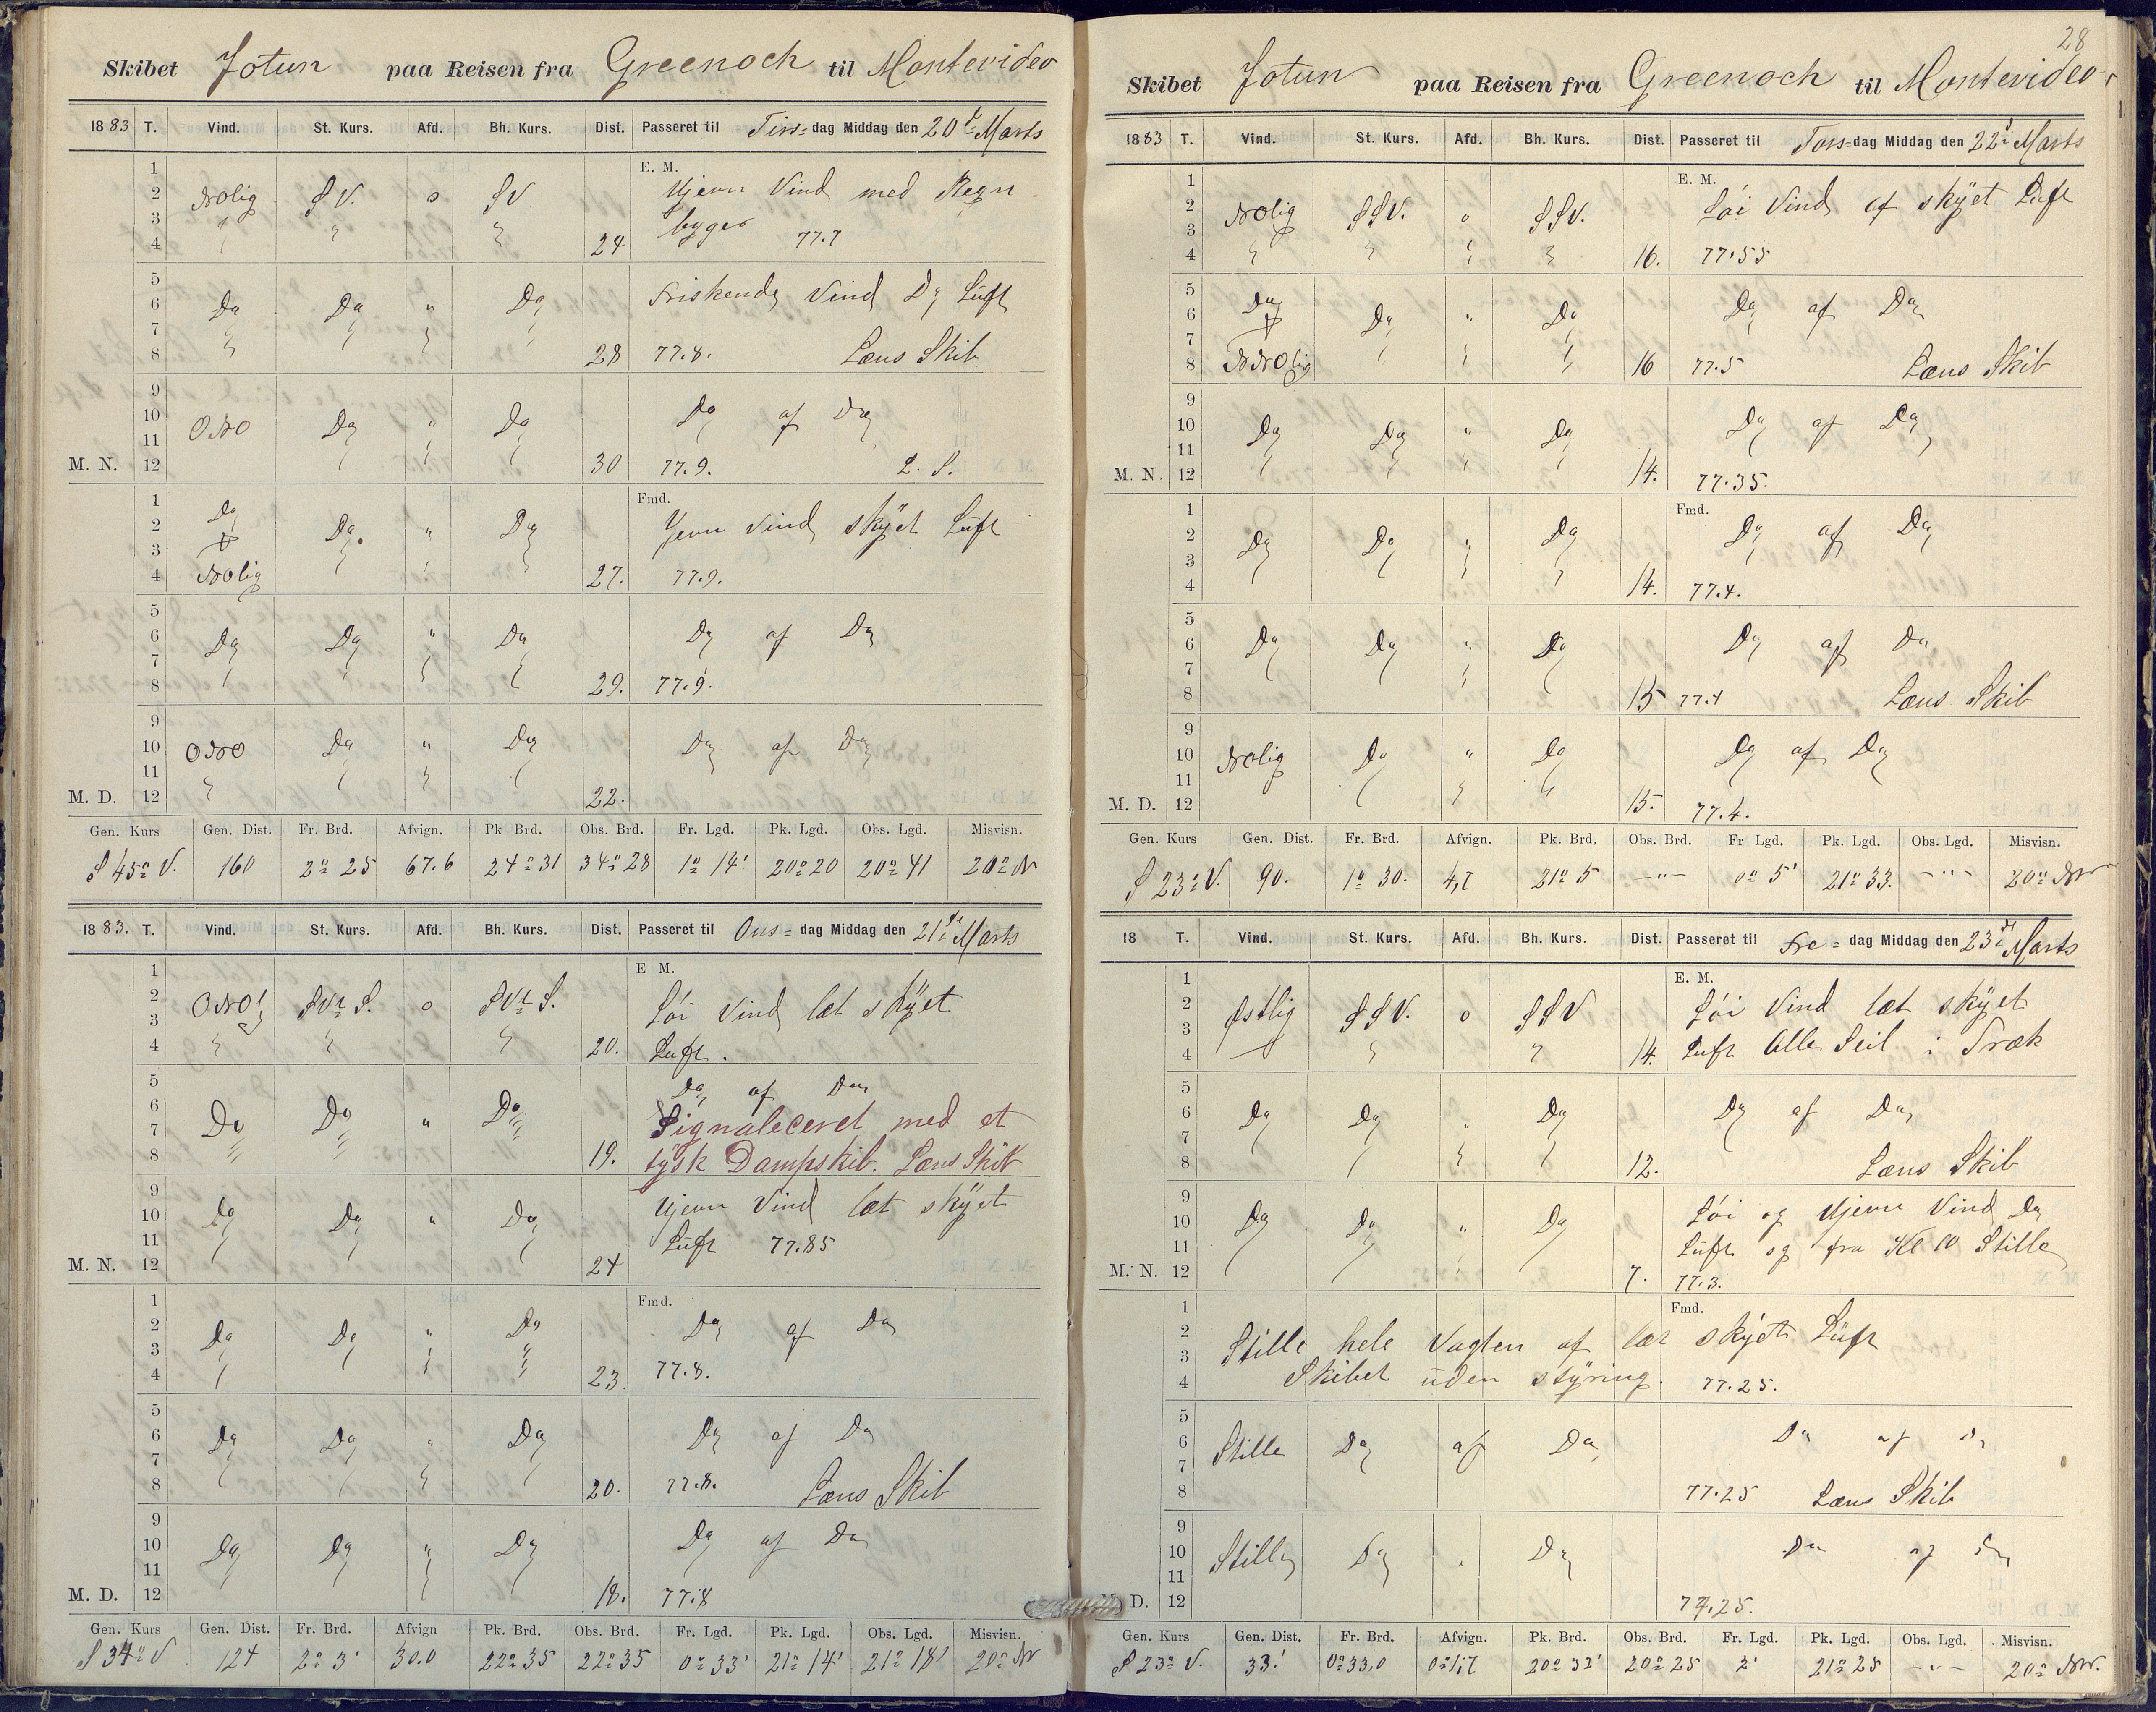 Skibet Jotun paa Reisen fra Greenoch til Montevideo
1883 T. Vind. St. Kurs. Afd. Bh. Kurs. Dist. Passeret til Tirs=dag Middag den 20de Marts
1 E. M.
2 Nolig SV. o SV Ujevn Vind med Regn
3 byger 77.7
4 24
5
6 Do Do " Do Friskende Vind Do Luft
7
8 28 77.8. Læns Skib
9
10 ONO Do " Do Do af Do
11
M. N. 12 30 77.9. L. S.
1 Do Fmd.
2 Do " Do Jevn Vind skÿet Luft
3
4 Nolig 27. 77.9.
5
6 Do Do " Do Do af Do
7
8 29. 77.9.
9
10 ONO Do " Do Do af Do
11
M. D. 12 22.
Gen. Kurs Gen. Dist. Fr. Brd. Afvign. Pk Brd. Obs. Brd. Fr. Lgd. Pk. Lgd. Obs. Lgd. Misvisn.
S 45° V. 160 2° 25 67.6 24° 31 34° 28 1° 14' 20° 20 20° 41 20° N
1883. T. Vind. St. Kurs. Afd. Bh. Kurs. Dist. Passeret til Ons= dag Middag den 21de Marts
1 E M.
2 ONO SVt S. o SVt S. Löi Vind læt skÿet
3
4 20. Luft.
5 Do af Do
6 Do Do " Do Signaleceret med et
7
8 19. tÿsk Dampskib. Læns Skib
9 Ujevn Vind læt skÿet
10 Do Do " Do
11 Luft 77.85
M. N. 12 24
1 Fmd.
2 Do Do " Do Do af Do
3
4 23 77.8.
5
6 Do Do " Do Do af Do
7
8 20. 77.8. Læns Skib
9
10 Do Do " Do Do af Do
11
M. D. 12 18. 77.8
Gen. Kurs Gen. Dist. Fr. Brd. Afvign Pk. Brd. Obs. Brd. Fr. Lgd. Pk. Lgd. Obs. Lgd. Misvisn.
S 34° V 124 2° 3' 30.0 22° 35 22° 35 0° 33' 21° 14' 21° 18' 20° N
28
Skibet Jotun paa Reisen fra Greenoch til Montevideo
1883 T. Vind. St. Kurs. Afd. Bh. Kurs. Dist. Passeret til Tors=dag Middag den 22de Marts
1 E. M.
2 Nolig SSV. o SSV. Löi Vind af skÿet Luft
3
4 16. 77.55
5
6 Do Do " Do Do af Do
7
8 NNOlig 16 77.5 Læns Skib
9
10 Do Do " Do Do af Do
11
M. N. 12 14. 77.35.
1 Fmd.
2 Do Do " Do Do af Do
3
4 14. 77.4.
5
6 Do Do " Do Do af Do
7
8 15 77.4 Læns Skib
9
10 Nolig Do " Do Do af Do
11
M. D. 12 15. 77.4.
Gen. Kurs Gen. Dist. Fr. Brd. Afvign. Pk. Brd. Obs. Brd. Fr Lgd. Pk. Lgd. Obs. Lgd. Misvisn.
S 23° V. 90. 1° 30. 4,7 21° 5 -"- 0° 5' 21° 33. -"- 20° NW
18 T. Vind. St. Kurs. Afd. Bh. Kurs. Dist. Passeret til Fre= dag Middag den 23de Marts
1 E. M.
2 Østlig SSV. o SSV Löi Vind læt skÿet
3
4 14. Luft Alle Seil i Træk
5
6 Do Do " Do Do af Do
7
8 12. Læns Skib
9 Löi og Ujevn Vind Do
10 Do Do " Do
11 Luft og fra Kl 10 Stille
M. N. 12 7. 77.3.
1 Fmd.
2 Stille hele Vagten af læt skÿet Lüft
3
4 Skibet uden stÿring. 77.25.
5
6 Stille Do af Do Do af Do
7
8 77.25 Læns Skib
9
10 Stille Do " Do Do af Do
11
D. 12 77.25.
Gen. Kurs Gen. Dist. Fr. Brd. Afvign. Pk. Brd. Obs. Brd. Fr. Lgd. Pk. Lgd. Obs. Lgd. Misvisn.
S 23° V. 33.' 0° 33,0 20° 32' 20° 25 2' 21° 25 -"- 20° NW.